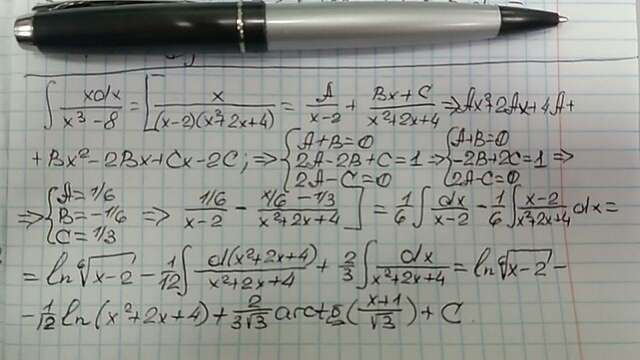 ∫ xdx/(x³-8) = [x/((x-2)(x²+2x+4)) = A/(x-2) + (Bx+C)/(x²+2x+4) ⇒ Ax²+2Ax+4A+
+Bx²-2Bx+Cx-2C; ⇒ {A+B=0 2A-2B+C=1 2A-C=0 ⇒ {A+B=0 -2B+2C=1 2A-C=0 ⇒
⇒ {A=1/6 B=-1/6 C=1/3 ⇒ (1/6)/(x-2) - (x/6-1/3)/(x²+2x+4)] = 1/6 ∫ dx/(x-2) - 1/6 ∫ (x-2)/(x²+2x+4) dx =
= ln ⁶√(x-2) - 1/12 ∫ d(x²+2x+4)/(x²+2x+4) + 2/3 ∫ dx/(x²+2x+4) = ln ⁶√(x-2) -
- 1/12 ln(x²+2x+4) + 2/(3√3) arctg((x+1)/√3) + C